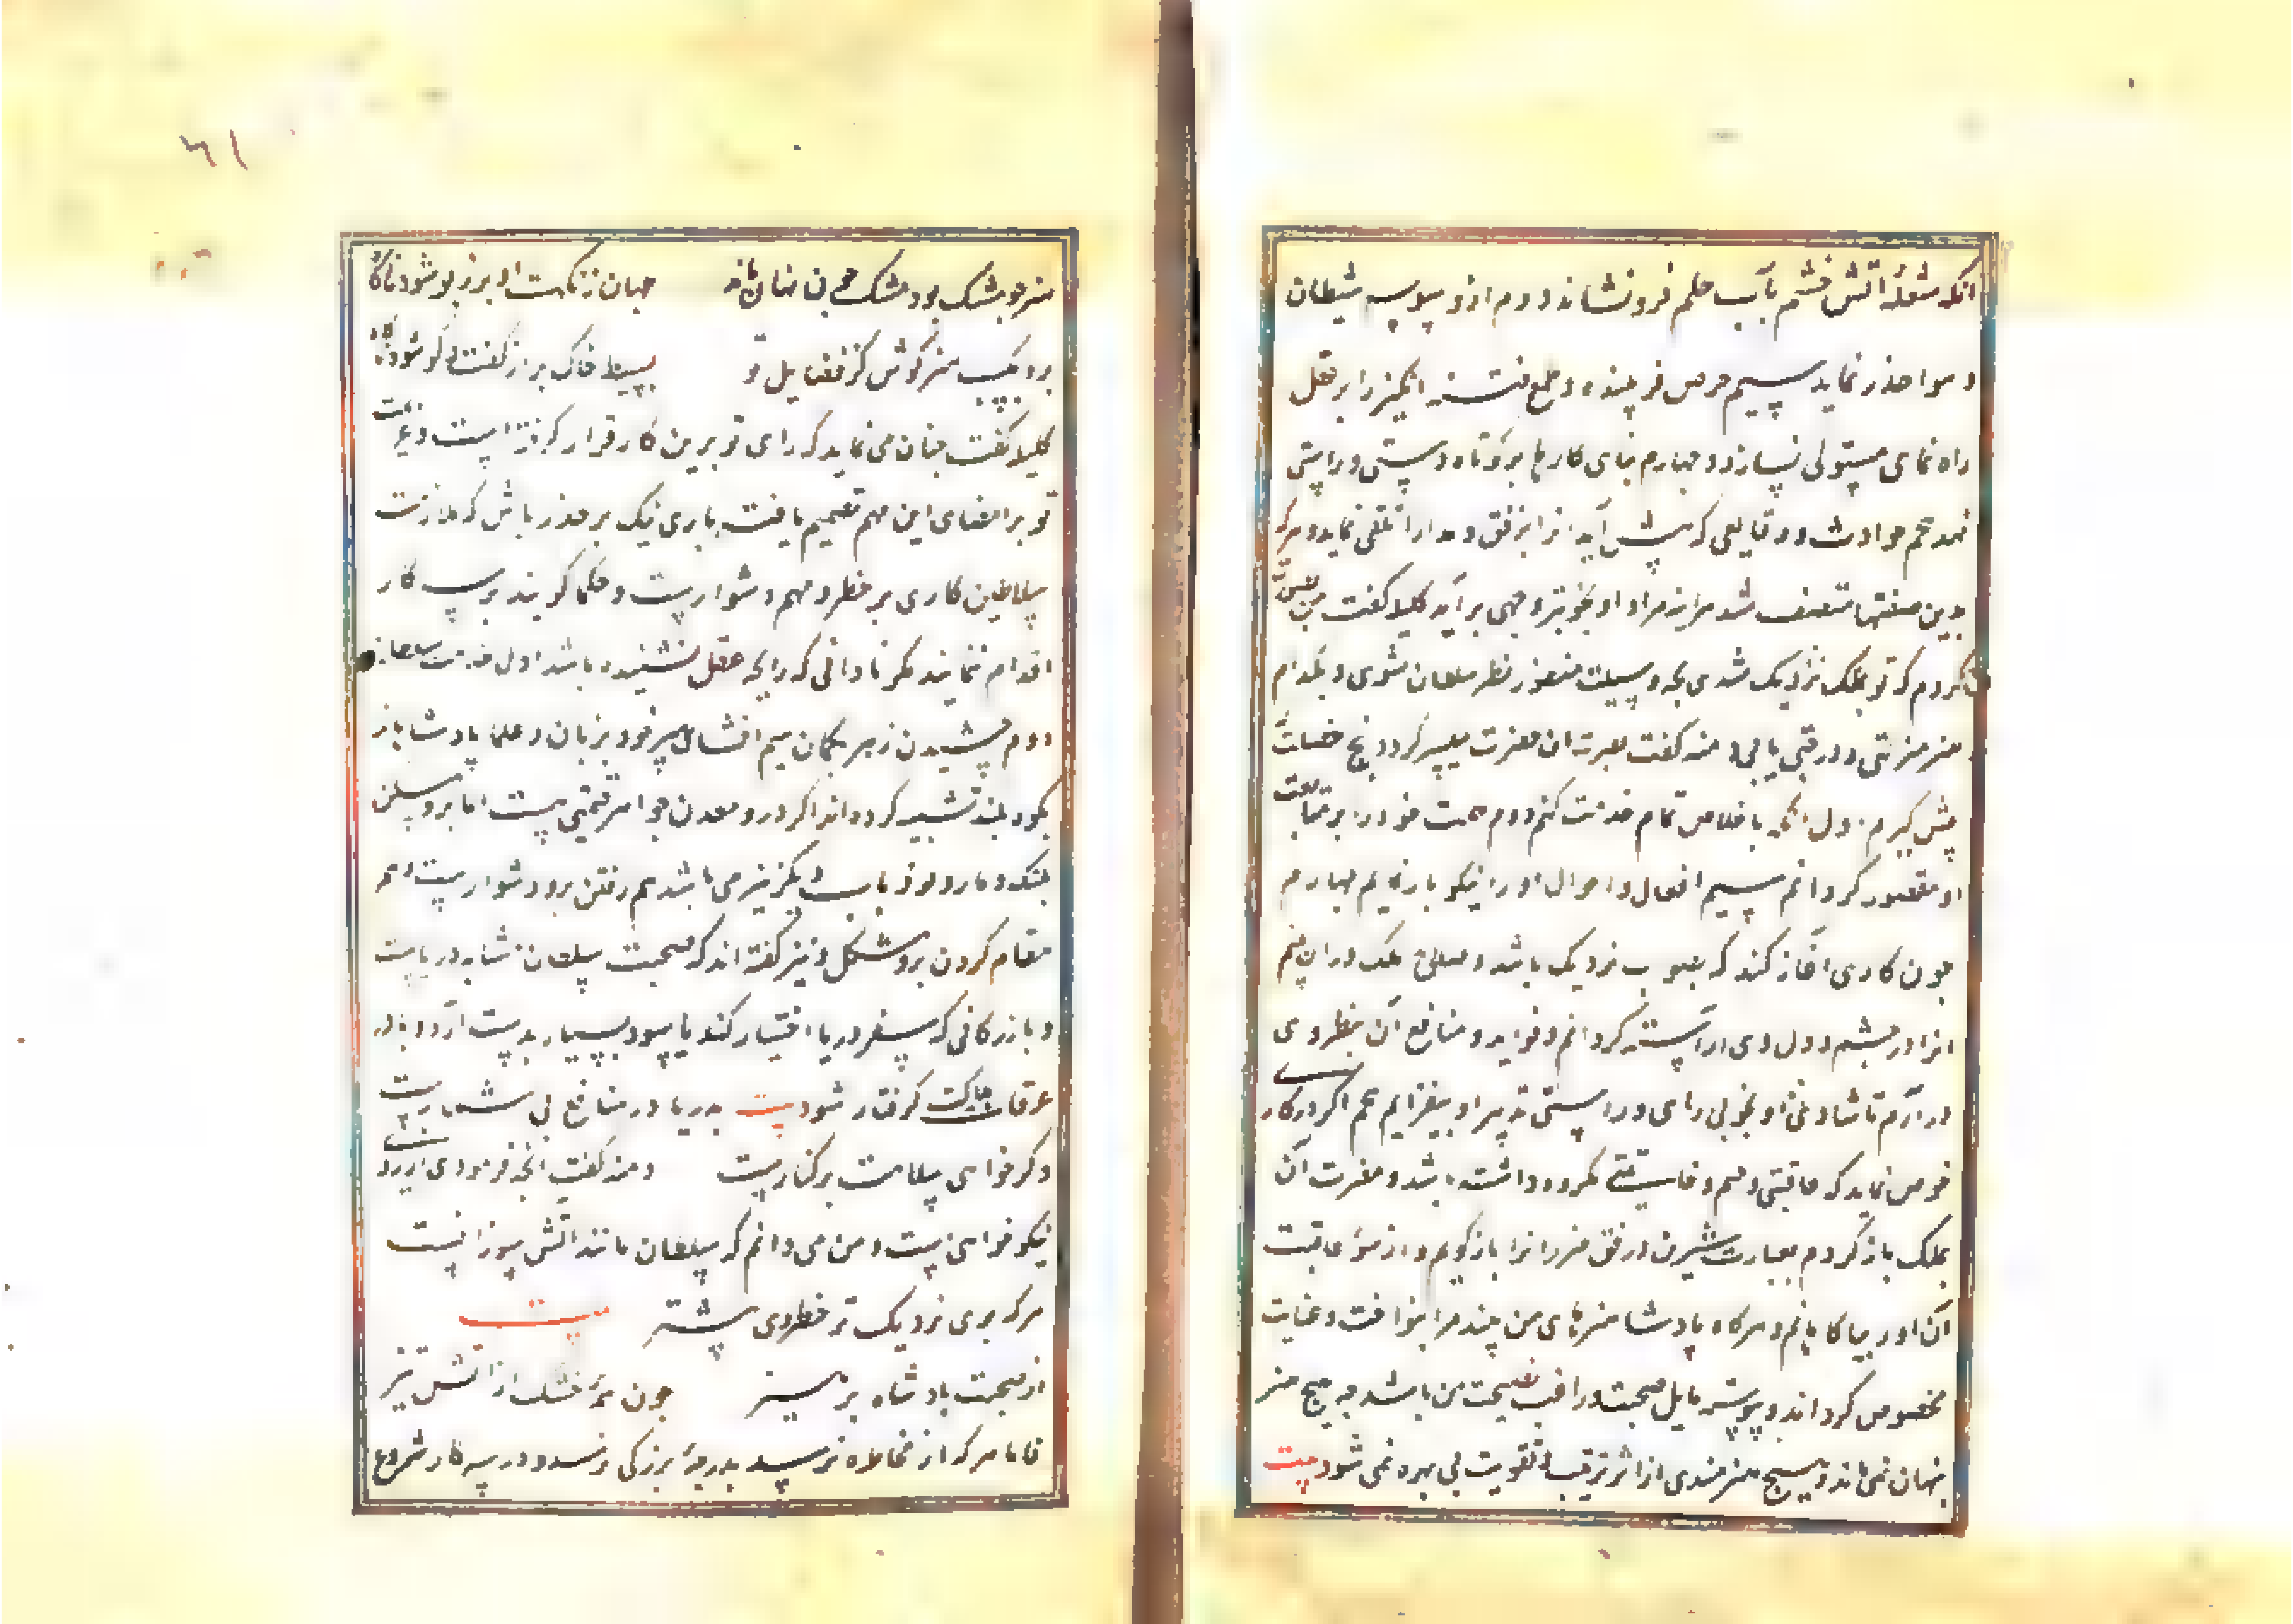 آنکه شعلهٔ آتش خشم بآب حلم فرو نشاند دوم از وسوسه شیطان
و هوا حذر نماید سیم حرص فریبنده و طمع فتنه انگیز را بر عقل
راه نمای مستولی نسازد و چهارم بنای کارها بر کوتاه دستی و راستی
نهد پنجم حوادث و وقایعی که پیش آید انرا برفق و مدارا تلقی نماید و هرکه
بدین صفتها متصف شد هراینه مراد او بخوبتر وجهی برآید کلیله گفت من
کردم که تو بملک نزدیک شدی بچه وسیلت منظور نظر سلطان شوی و بکدام
هنر منزلتی و درجتی یابی دمنه گفت قربت ان حضرت میسر گردد پنج خصلت
پیش گیرم اول آنکه باخلاص تمام خدمت کنم دوم همت خود را بر متابعت
او مقصور گردانم سیم افعال و احوال او را نیکو باز نمایم چهارم
چون کاری آغاز کند که بصواب نزدیک باشد و صلاح ملک در ان بینم
انرا در چشم و دل وی آراسته گردانم و فواید و منافع آن بنظر وی
درآرم تا شادی او بخوبی رای و راستی تدبیر او بیفزایم پنجم اگر در کاری
خوض نماید که عاقبتی وخیم و خاتمتی مکروه داشته باشد و مضرت آن
بملک بازگردد بعبارت شیرین و رفق ضرر انرا باز گویم و از سوء عاقبت
آن او را بیاگاهانم و هرگاه پادشاه هنرهای من بیند مرا بنواخت و عنایت
مخصوص گرداند و پیوسته مایل صحبت و راغب نصیحت من باشد چه هیچ هنر
پنهان نمی ماند و هیچ هنرمندی از اثر تربیت و تقویت بی بهره نمی شود بیت
۶۱
هنر چو مشک بود مشک کی نهان ماند جهان ز نکهت او پر ز بو شود ناگاه
برو بکسب هنر کوش کز فضایل تو بسیط خاک پر از گفت و گو شود ناگاه
کلیله گفت چنان می نماید که رای تو برین کار قرار گرفته است و عزیمت
تو بر امضای این مهم تصمیم یافت باری نیک بر حذر باش که ملازمت
سلاطین کاری پر خطر و مهم دشوارست و حکما گویند بر سه کار
اقدام ننمایند مگر نادانی که رایحه عقل نشنیده باشد اول خدمت سلطان
دوم چشیدن زهر بگمان سیم افشای سر خود بزنان و علما پادشاه را
بکوه بلند تشبیه کرده اند اگر درو معدن جواهر قیمتی هست اما برو مسکن
پلنگ و مار و موذیات دیگر نیز می باشد هم رفتن برو دشوارست و هم
مقام کردن برو مشکل و نیز گفته اند که صحبت سلطان مشابه دریاست
و بازرگانی که سفر دریا اختیار کند یا سود بسیار بدست آرد یا در
غرقاب هلاکت گرفتار شود بیت بدریا در منافع بی شمارست
وگر خواهی سلامت برکنارست دمنه گفت آنچه فرمودی از روی
نیکو خواهی است و من می دانم که سلطان مانند آتش سوزانست
هرکه بوی نزدیک تر خطر وی بیشتر بیت
از صحبت پادشاه بپرهیز چون هیزم خشک از آتش تیز
فاما هرکه از مخاطره ترسد بدرجهٔ بزرگی نرسد و در سه کار شروع